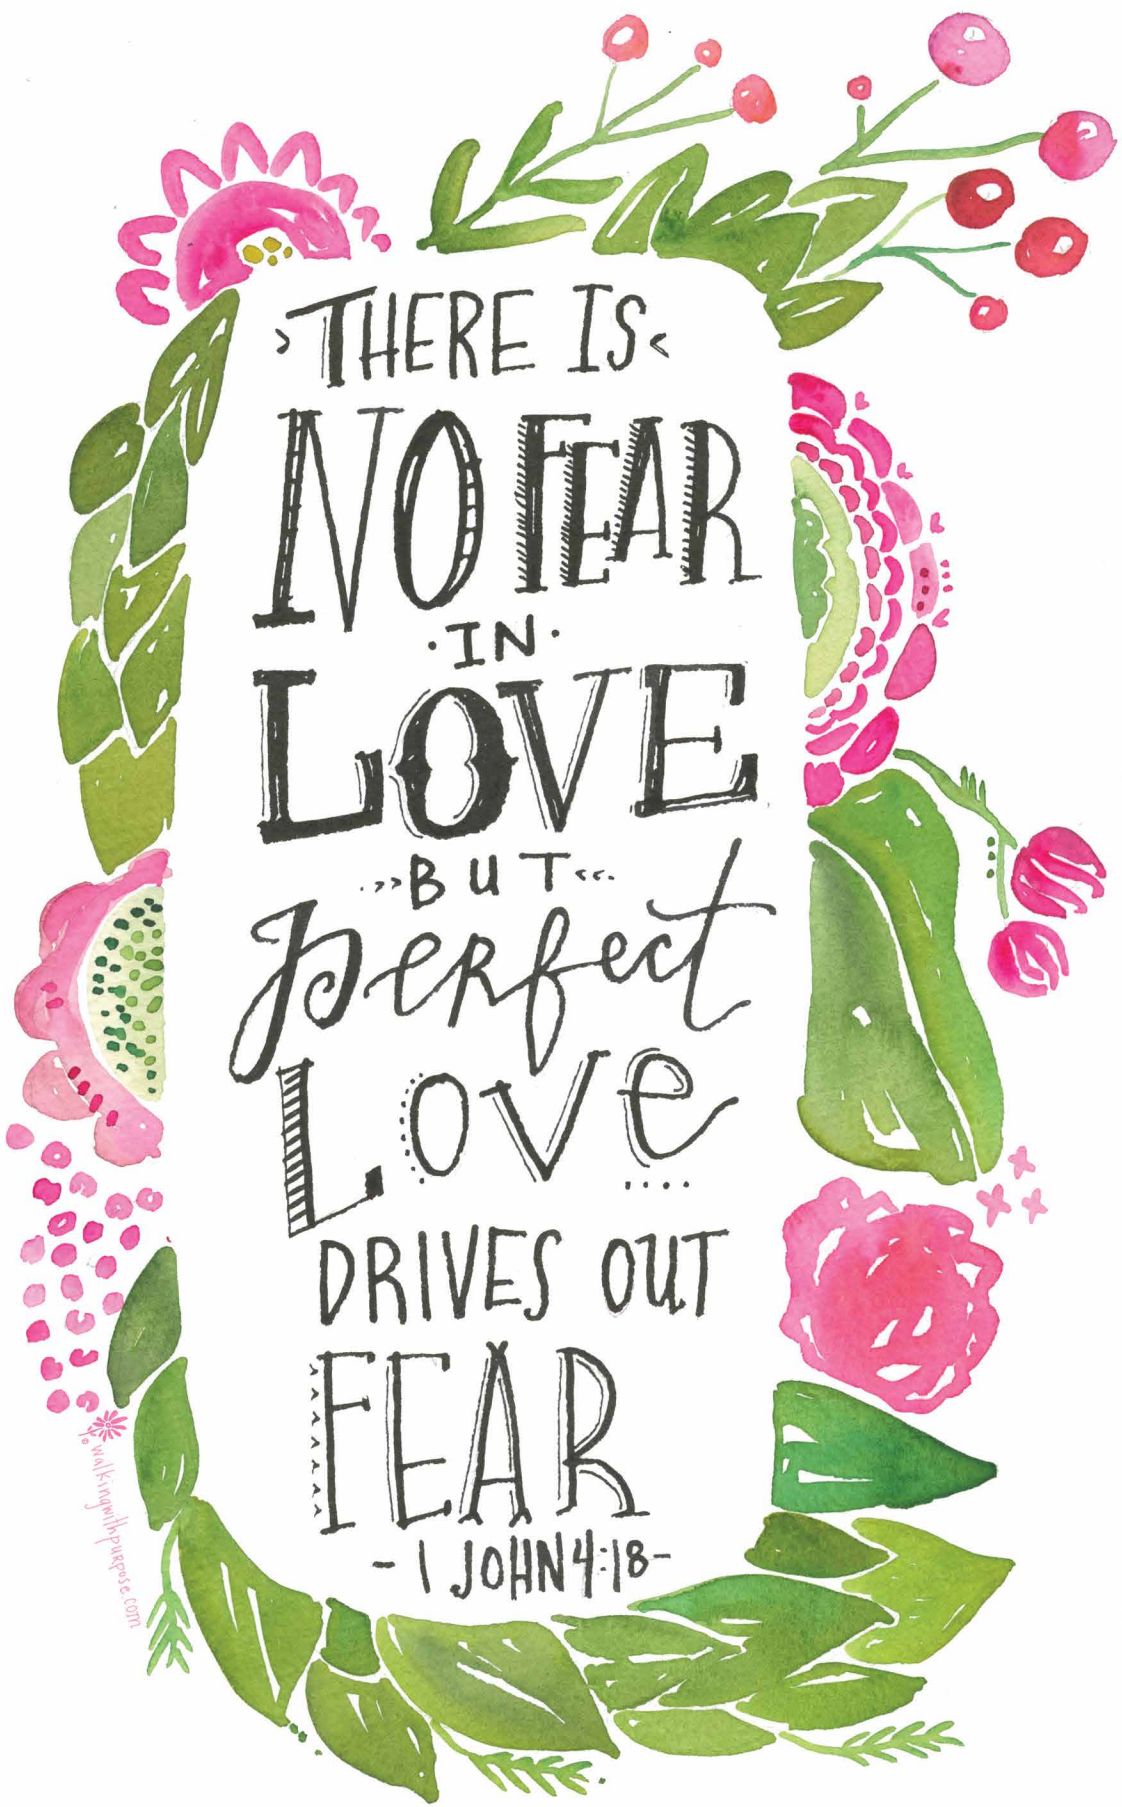 THERE IS
NO FEAR
IN
LOVE
BUT
perfect
Love
DRIVES OUT
FEAR
- 1 JOHN 4:18-
walkingwithpurpose.com